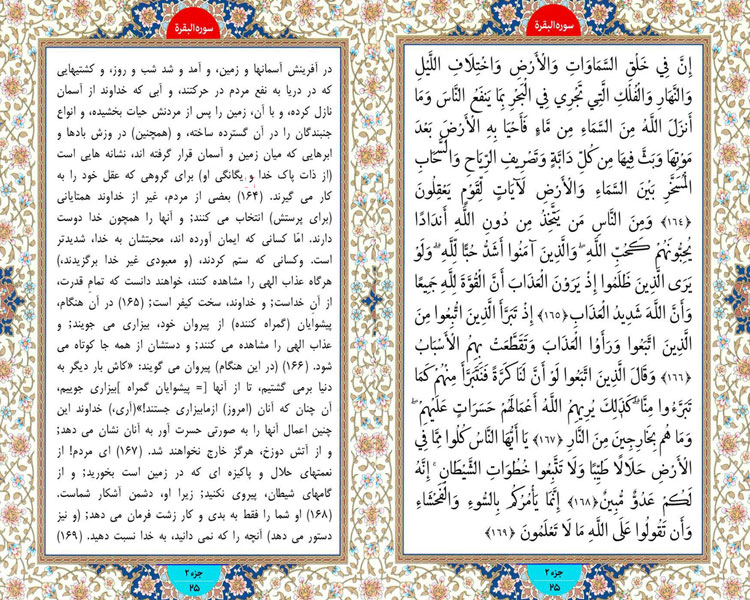 سورة البقرة
إِنَّ فِي خَلْقِ السَّمَاوَاتِ وَالْأَرْضِ وَاخْتِلَافِ اللَّيْلِ
وَالنَّهَارِ وَالْفُلْكِ الَّتِي تَجْرِي فِي الْبَحْرِ بِمَا يَنفَعُ النَّاسَ وَمَا
أَنزَلَ اللَّهُ مِنَ السَّمَاءِ مِن مَّاءٍ فَأَحْيَا بِهِ الْأَرْضَ بَعْدَ
مَوْتِهَا وَبَثَّ فِيهَا مِن كُلِّ دَابَّةٍ وَتَصْرِيفِ الرِّيَاحِ وَالسَّحَابِ
الْمُسَخَّرِ بَيْنَ السَّمَاءِ وَالْأَرْضِ لَآيَاتٍ لِّقَوْمٍ يَعْقِلُونَ
﴿۱۶۴﴾ وَمِنَ النَّاسِ مَن يَتَّخِذُ مِن دُونِ اللَّهِ أَندَادًا
يُحِبُّونَهُمْ كَحُبِّ اللَّهِ ۖ وَالَّذِينَ آمَنُوا أَشَدُّ حُبًّا لِّلَّهِ ۗ وَلَوْ
يَرَى الَّذِينَ ظَلَمُوا إِذْ يَرَوْنَ الْعَذَابَ أَنَّ الْقُوَّةَ لِلَّهِ جَمِيعًا
وَأَنَّ اللَّهَ شَدِيدُ الْعَذَابِ ﴿۱۶۵﴾ إِذْ تَبَرَّأَ الَّذِينَ اتُّبِعُوا مِنَ
الَّذِينَ اتَّبَعُوا وَرَأَوُا الْعَذَابَ وَتَقَطَّعَتْ بِهِمُ الْأَسْبَابُ
﴿۱۶۶﴾ وَقَالَ الَّذِينَ اتَّبَعُوا لَوْ أَنَّ لَنَا كَرَّةً فَنَتَبَرَّأَ مِنْهُمْ كَمَا
تَبَرَّءُوا مِنَّا ۗ كَذَٰلِكَ يُرِيهِمُ اللَّهُ أَعْمَالَهُمْ حَسَرَاتٍ عَلَيْهِمْ ۖ
وَمَا هُم بِخَارِجِينَ مِنَ النَّارِ ﴿۱۶۷﴾ يَا أَيُّهَا النَّاسُ كُلُوا مِمَّا فِي
الْأَرْضِ حَلَالًا طَيِّبًا وَلَا تَتَّبِعُوا خُطُوَاتِ الشَّيْطَانِ ۚ إِنَّهُ
لَكُمْ عَدُوٌّ مُّبِينٌ ﴿۱۶۸﴾ إِنَّمَا يَأْمُرُكُم بِالسُّوءِ وَالْفَحْشَاءِ
وَأَن تَقُولُوا عَلَى اللَّهِ مَا لَا تَعْلَمُونَ ﴿۱۶۹﴾
جزء ۲
۲۵
سورة البقرة
در آفرینش آسمانها و زمین، و آمد و شد شب و روز، و کشتیهایی
که در دریا به نفع مردم در حرکتند، و آبی که خداوند از آسمان
نازل کرده، و با آن، زمین را پس از مردنش حیات بخشیده، و انواع
جنبندگان را در آن گسترده ساخته، و (همچنین) در وزش بادها و
ابرهایی که میان زمین و آسمان قرار گرفته اند، نشانه هایی است
(از ذات پاک خدا و یگانگی او) برای گروهی که عقل خود را به
کار می گیرند. (۱۶۴) بعضی از مردم، غیر از خداوند همتایانی
(برای پرستش) انتخاب می کنند؛ و آنها را همچون خدا دوست
دارند. امّا کسانی که ایمان آورده اند، محبتشان به خدا، شدیدتر
است. وکسانی که ستم کردند، (و معبودی غیر خدا برگزیدند،)
هرگاه عذاب الهی را مشاهده کنند، خواهند دانست که تمام قدرت،
از آنِ خداست؛ و خداوند، سخت کیفر است؛ (۱۶۵) در آن هنگام،
پیشوایان (گمراه کننده) از پیروان خود، بیزاری می جویند؛ و
عذاب الهی را مشاهده می کنند؛ و دستشان از همه جا کوتاه می
شود. (۱۶۶) (در این هنگام) پیروان می گویند: «کاش بار دیگر به
دنیا برمی گشتیم، تا از آنها [= پیشوایان گمراه ]بیزاری جوییم،
آن چنان که آنان (امروز) ازمابیزاری جستند!»(آری،) خداوند این
چنین اعمال آنها را به صورتی حسرت آور به آنان نشان می دهد؛
و از آتش دوزخ، هرگز خارج نخواهند شد. (۱۶۷) ای مردم! از
نعمتهای حلال و پاکیزه ای که در زمین است بخورید؛ و از
گامهای شیطان، پیروی نکنید؛ زیرا او، دشمن آشکار شماست.
(۱۶۸) او شما را فقط به بدی و کار زشت فرمان می دهد؛ (و نیز
دستور می دهد) آنچه را که نمی دانید، به خدا نسبت دهید. (۱۶۹)
جزء ۲
۲۵